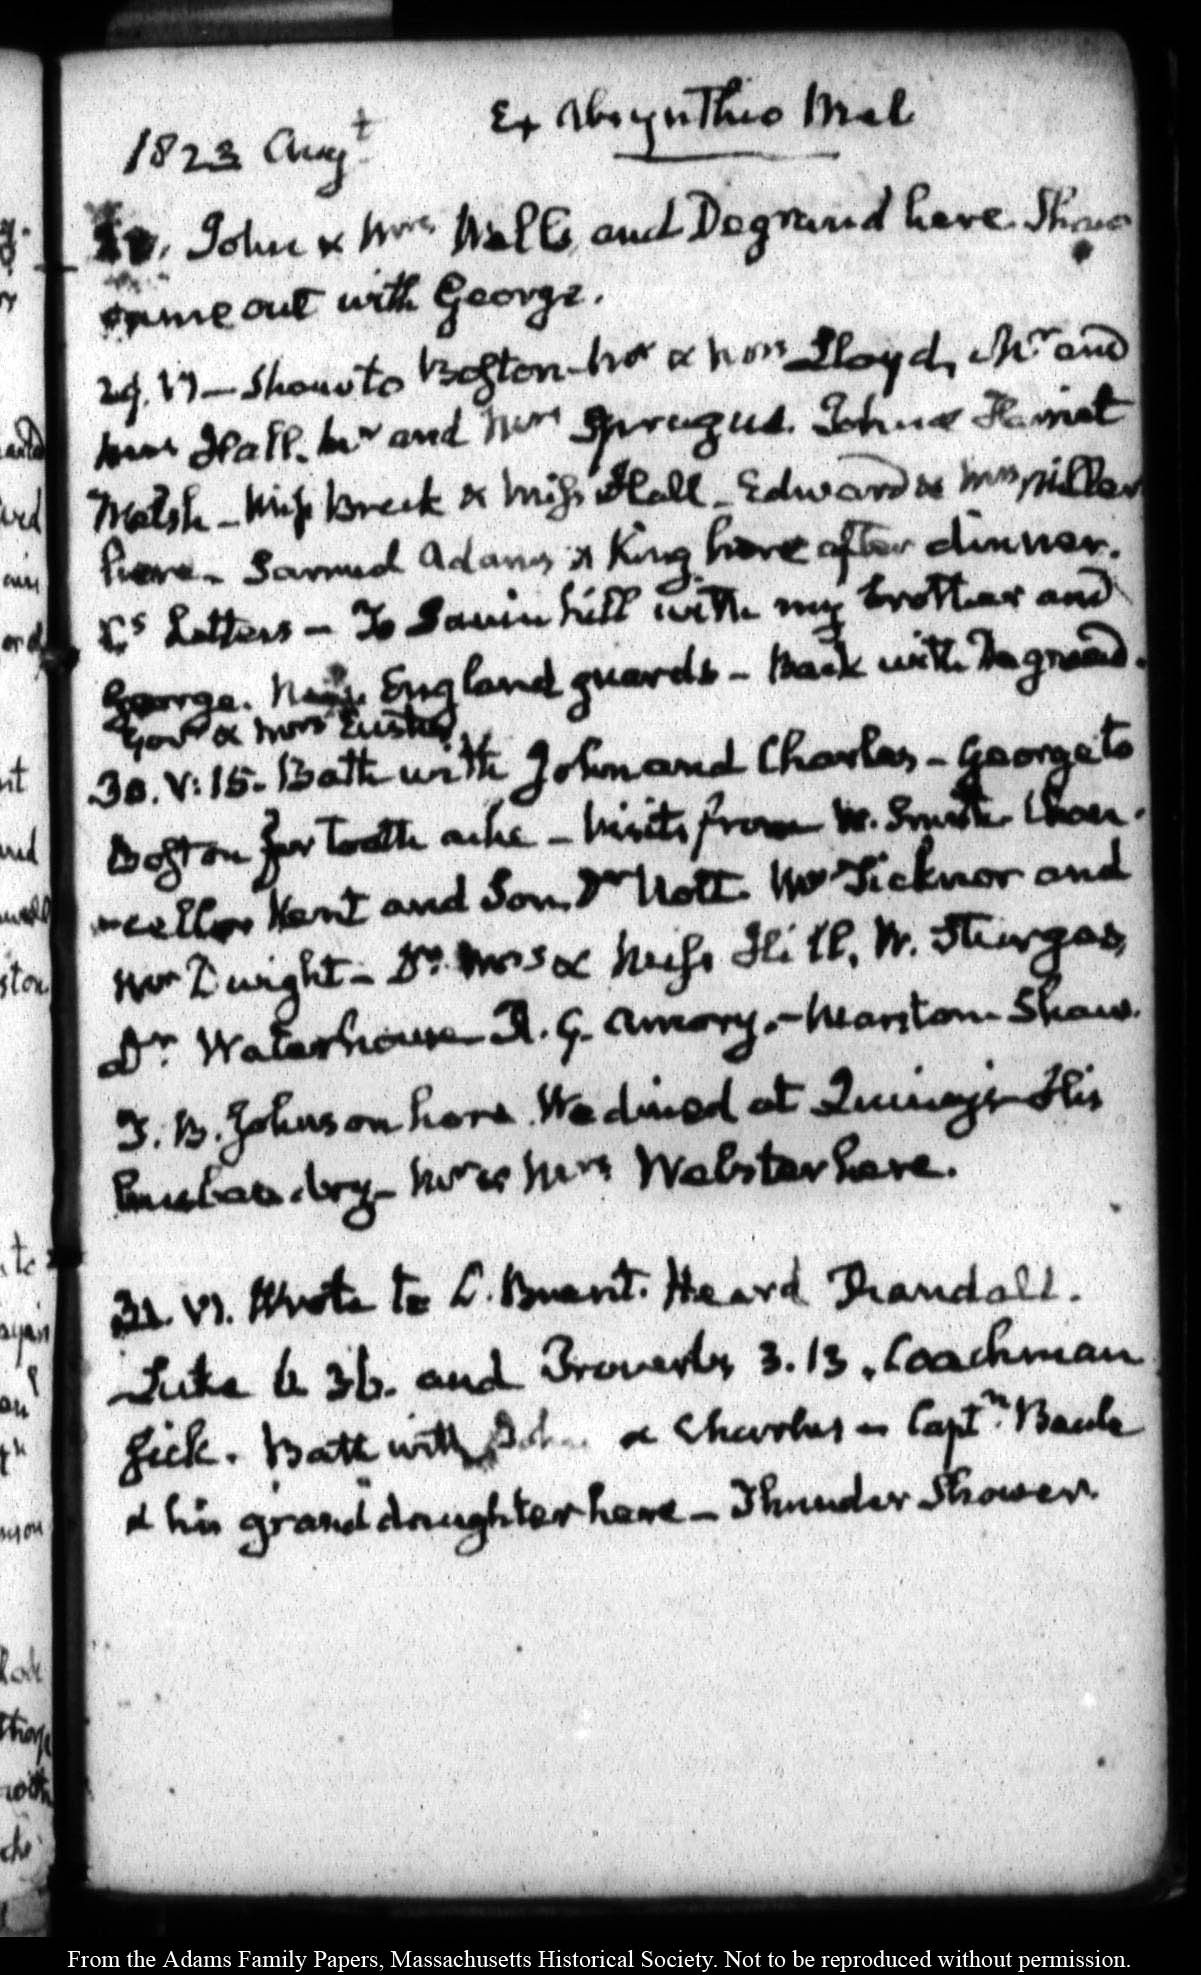 1823 Augt
Ex Absynthio Mel
John & Mrs Wells and Degrand here. Shaw
came out with George.
29. VI — Shaw to Boston — Mr & Mrs Lloyd, Mr and
Mrs Hall. Mr and Mrs Sprague. John & Harriet
Welsh — Miss Breck & Miss Hall — Edward & Mrs Miller
here — Samuel Adams & King here after dinner.
Letters — To Savin hill with my brother and
George. New England guards — Back with Degrand.
Govr & Mrs Eustis
30. V:15. Bath with John and Charles — George to
Boston for tooth ache — Visits from W. Smith Chan-
-cellor Kent and Son, Dr Nott. Mr Ticknor and
Mr Dwight — Dr. Mrs & Miss Hill, W. Sturgas,
Dr Waterhouse — Amory. — Marston — Shaw.
T. B. Johnson here. We dined at Quincy's — His
husbandry — Mr & Mrs Webster here.
31. VI. Wrote to Heard Randall.
Luke 6 36. and Proverbs 3.13. Coachman
sick. Bath with John & Charles — Captn. Beale
& his grand daughter here — Thunder Shower.
From the Adams Family Papers, Massachusetts Historical Society. Not to be reproduced without permission.